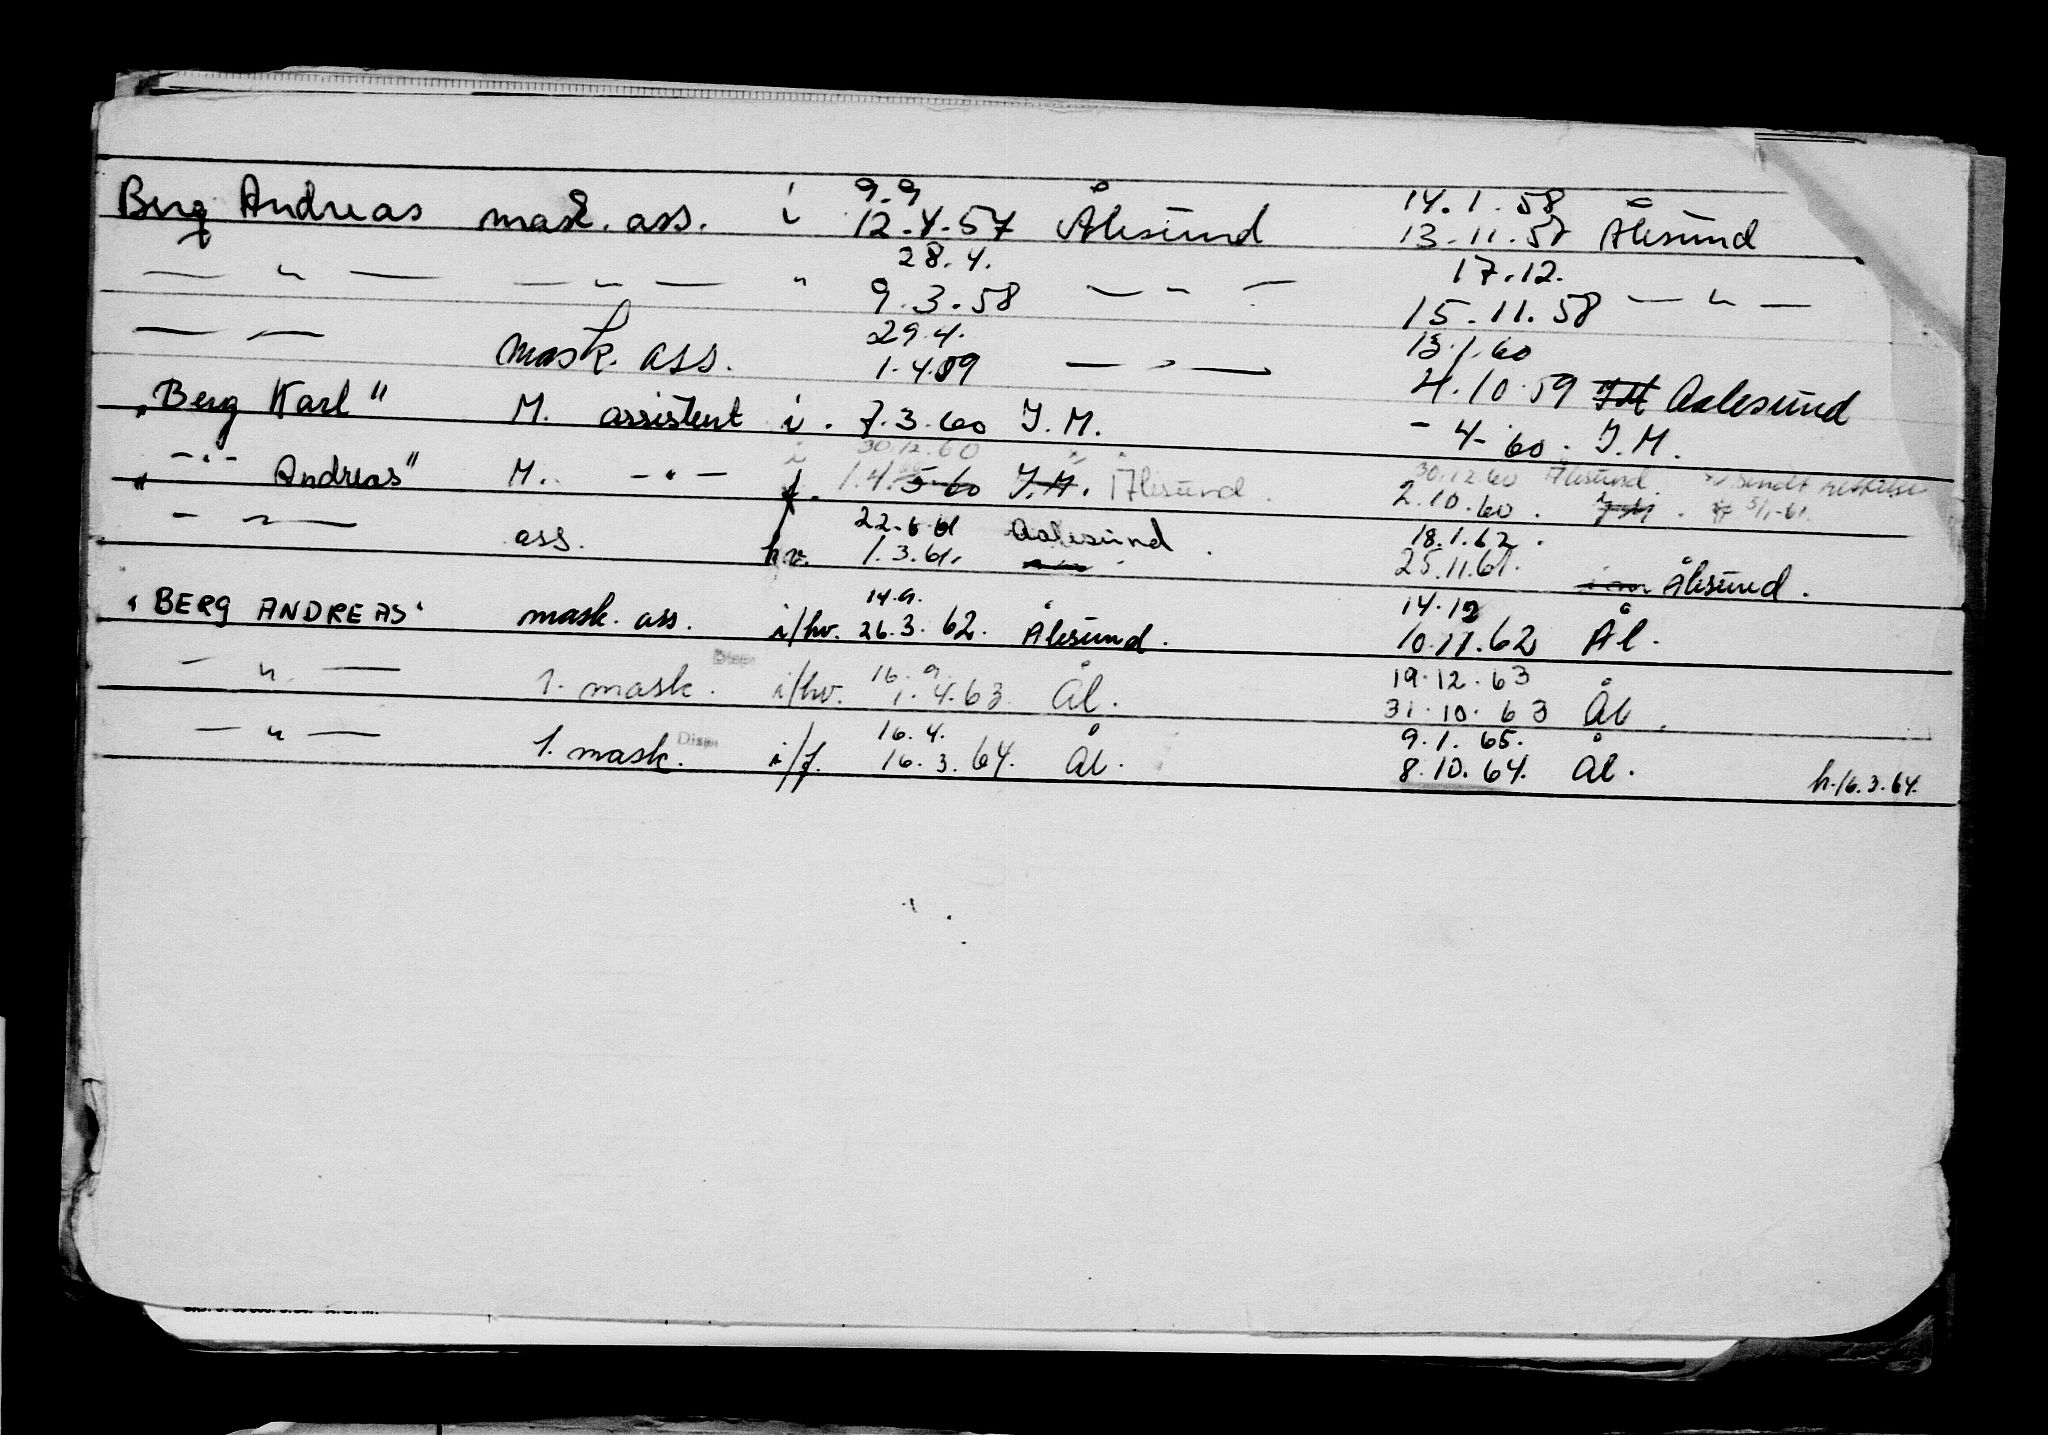 9.9 14.1.58
Berg Andreas mask. ass. i 12.4.57 Ålesund 13.11.57 Ålesund
28.4. 17.12.
— " — — " — " 9.3.58 — " — 15.11.58 — " —
29.4. 13.1.60
— " — mask. ass. 1.4.59 — " — 21.10.59 I.M. Aalesund
"Berg Karl" M. assistent i. 7.3.60 I.M. - 4- 60. I.M.
i 30.12.60 30.12.60 Ålesund sendt
" — " — Andreas" M. — " — f. 1.4.60 I.M. Ålesund. 2.10.60. I.M. 5/1-61.
22.6.61 Aalesund. 18.1.62.
— " — ass. hv. 1.3.61. 25.11.61. i m Ålesund.
14.9. 14.12
"BERG ANDREAS" mask. ass. i/hv. 26.3.62. Ålesund. 10.11.62 Ål.
Disp. 16.9. 19.12.63
— " — 1. mask. i/hv. 1.4.63. Ål. 31.10.63 Ål.
Disp. 16.4. 9.1.65.
— " — 1. mask. i/f. 16.3.64. Ål. 8.10.64. Ål. h.16.3.64.